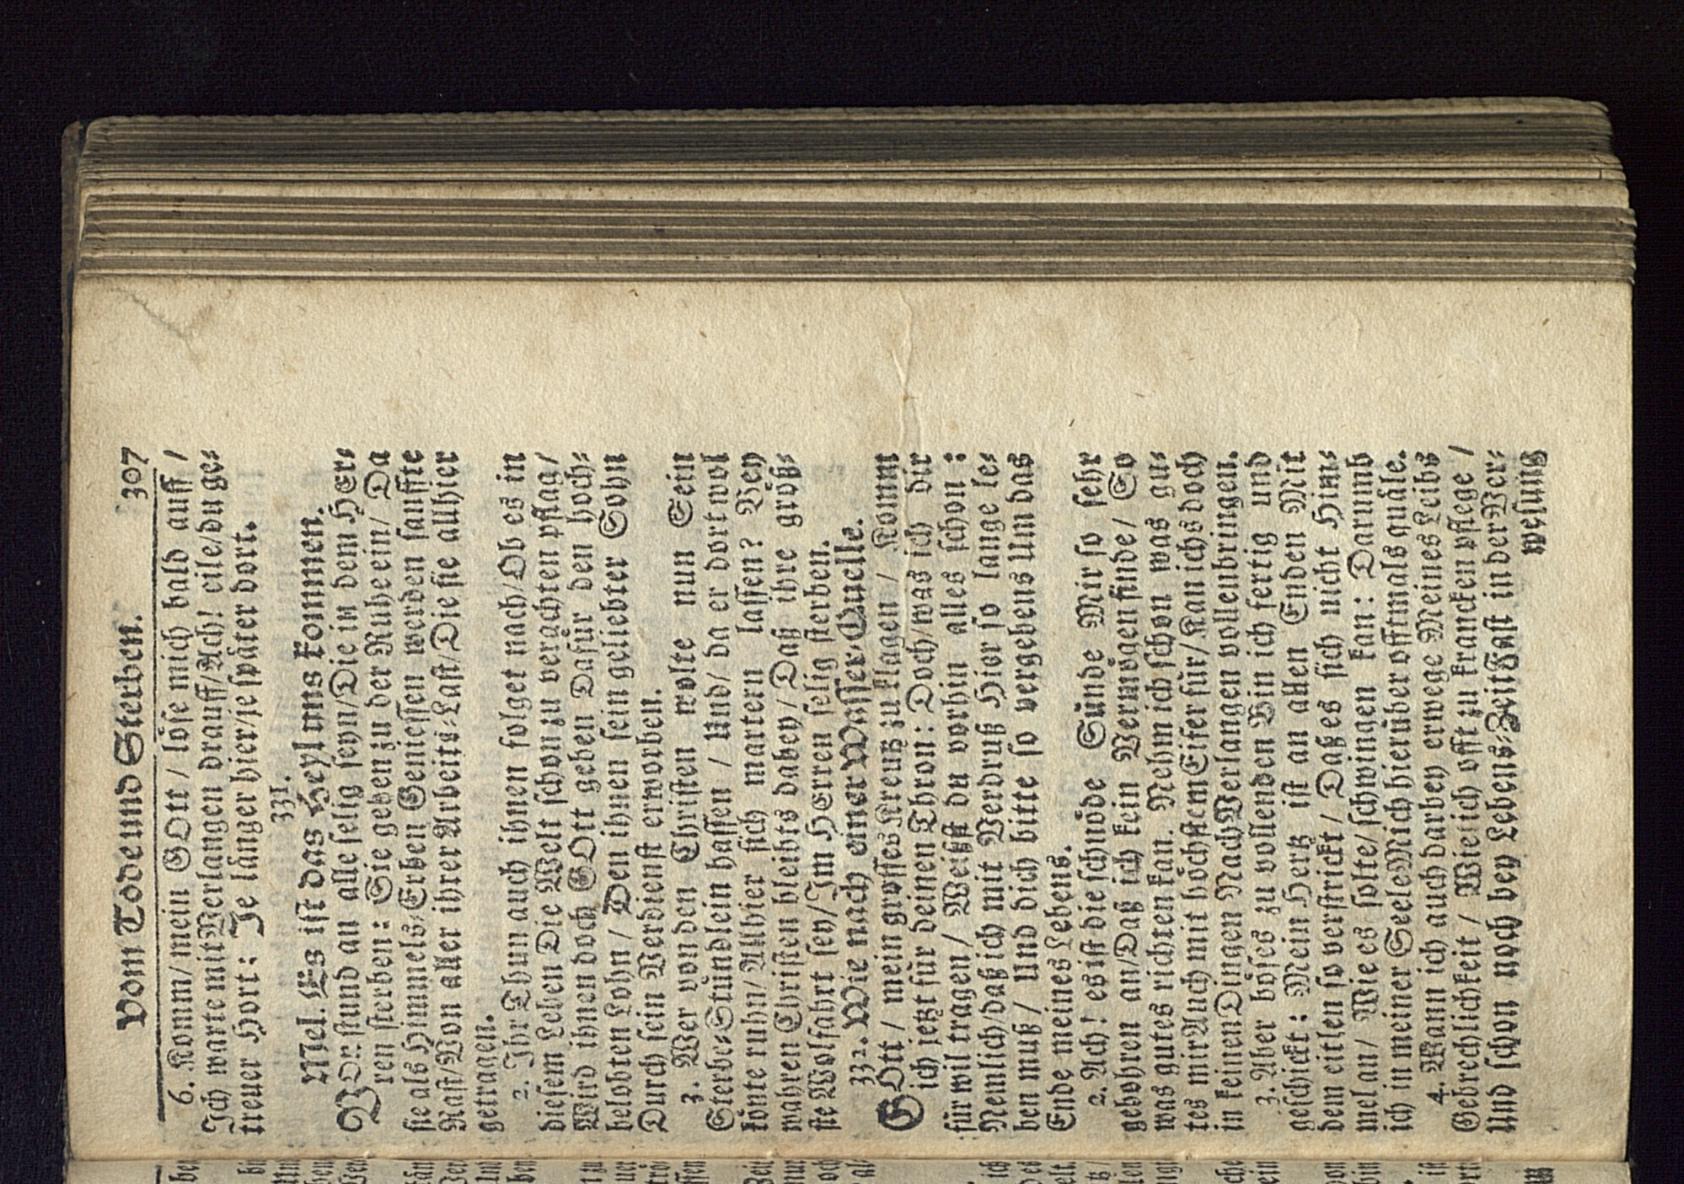 Vom Tode und Sterben. 307
6. Komm/ mein GOtt / löse mich bald auff /
Ich warte mit Verlangen drauff/Ach! eile/du ge-
treuer Hort: Je länger hier/je später dort.
331.
Mel. Es ist das Heyl uns kommen.
VOn stund an alle selig seyn/Die in dem HEr-
ren sterben: Sie gehen zu der Ruhe ein/ Da
sie als Himmels-Erben Geniessen werden sanffte
Rast/Von aller ihrer Arbeits-Last/Die sie allhier
getragen.
2. Ihr Thun auch ihnen folget nach/Ob es in
diesem Leben Die Welt schon zu verachten pflag/
Wird ihnen doch GOtt geben Dafür den hoch-
belobten Lohn/ Den ihnen sein geliebter Sohn
Durch sein Verdienst erworben.
3. Wer von den Christen wolte nun Sein
Sterbe-Stündlein hassen / Und/ da er dort wol
könte ruhn/ Allhier sich martern lassen? Bey
wahren Christen bleibts dabey/ Daß ihre größ-
ste Wolfahrt sey/Im HErren selig sterben.
332. Wie nach einer Wasser-Quelle.
GOtt / mein grosses Kreutz zu klagen / Komm
ich jetzt für deinen Thron: Doch/was ich dir
für wil tragen/ Weißt du vorhin alles schon:
Nemlich/daß ich mit Verdruß Hier so lange le-
ben muß/ Und dich bitte so vergebens Um das
Ende meines Lebens.
2. Ach! es ist die schnöde Sünde Mir so sehr
gebohren an/Daß ich kein Vermögen finde/ So
was gutes richten kan. Nehm ich schon was gu-
tes mir Auch mit höchstem Eifer für/Kan ichs doch
in keinen Dingen Nach Verlangen vollenbringen.
3. Aber böses zu vollenden Bin ich fertig und
geschickt: Mein Hertz ist an allen Enden Mit
dem eitlen so verstrickt/ Daß es sich nicht Him-
mel an/ Wie es solte/schwingen kan: Darumb
ich in meiner Seele Mich hierüber offtmals quäle.
4. Wann ich auch darbey erwege Meines Leibs
Gebrechlichkeit / Wie ich offt zu krancken pflege /
Und schon noch bey Lebens-Zeit Fast in der Ver-
wesung